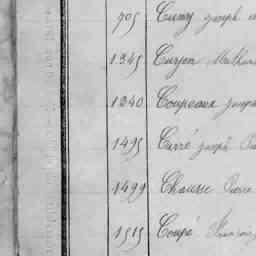 705 Cumy Joseph
1345 Curjon Mathurin
1240 Coupeaux Joseph
1495 Curré Joseph
1499 Chausse Pierre
1515 Coupé François